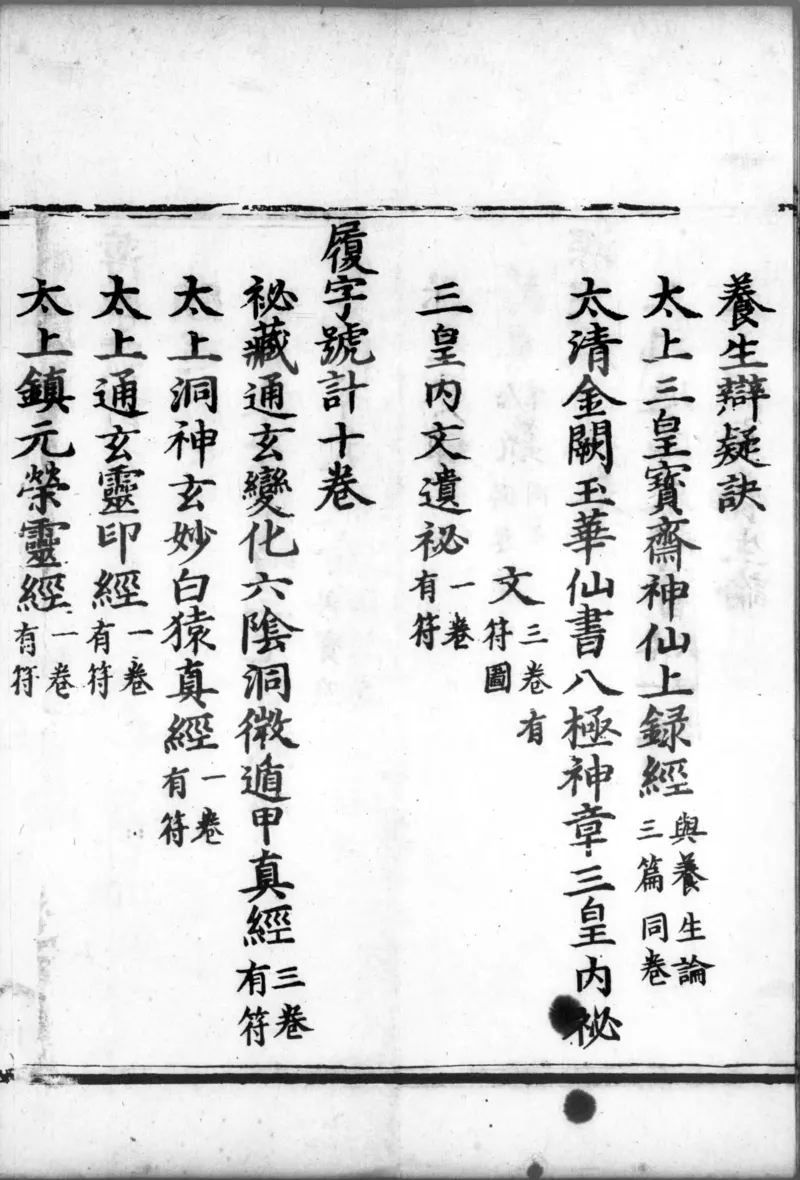 養生辯疑訣
太上三皇寶齋神仙上録經與養生論三篇同卷
太清金闕玉華仙書八極神章三皇内祕
文三卷有符圖
三皇内文遺祕一卷有符
履字號計十卷
祕藏通玄變化六陰洞微遁甲真經三卷有符
太上洞神玄妙白猿真經一卷有符
太上通玄靈印經一卷有符
太上鎮元榮靈經一卷有符